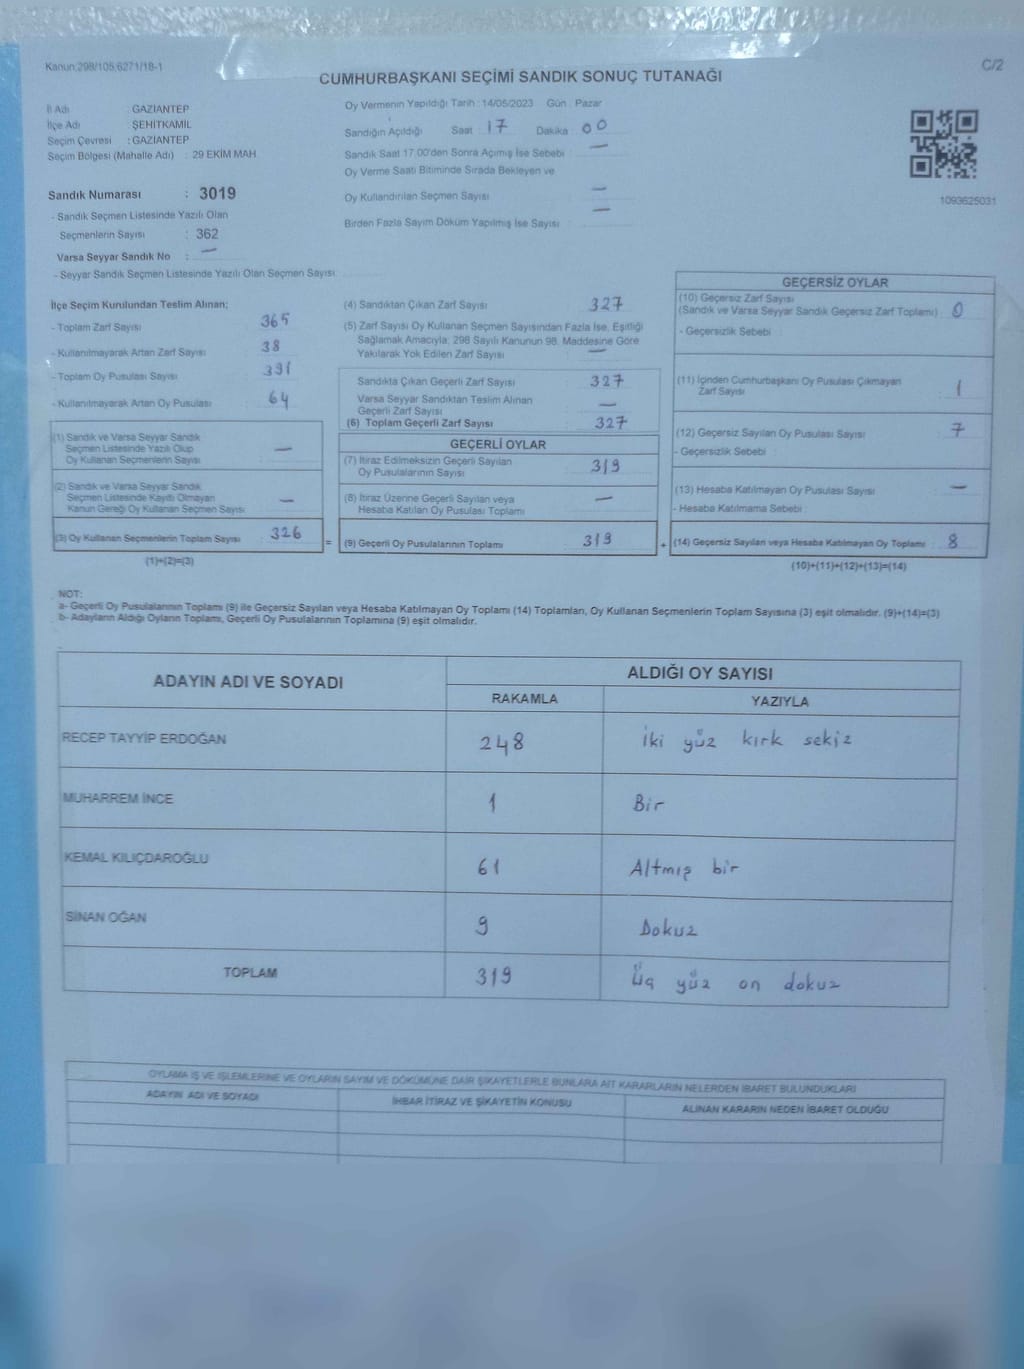 Kanun:298/105,6271/18-1
C/2
CUMHURBAŞKANI SEÇİMİ SANDIK SONUÇ TUTANAĞI
İl Adı : GAZİANTEP
İlçe Adı : ŞEHİTKAMİL
Seçim Çevresi : GAZİANTEP
Seçim Bölgesi (Mahalle Adı) : 29 EKİM MAH.
Sandık Numarası : 3019
- Sandık Seçmen Listesinde Yazılı Olan
Seçmenlerin Sayısı : 362
Varsa Seyyar Sandık No : —
- Seyyar Sandık Seçmen Listesinde Yazılı Olan Seçmen Sayısı:
Oy Vermenin Yapıldığı Tarih : 14/05/2023 Gün : Pazar
Sandığın Açıldığı Saat : 17 Dakika : 00
Sandık Saat 17:00'den Sonra Açımış İse Sebebi : —
Oy Verme Saati Bitiminde Sırada Bekleyen ve
Oy Kullandırılan Seçmen Sayısı : —
Birden Fazla Sayım Döküm Yapılmış İse Sayısı : —
1093625031
İlçe Seçim Kurulundan Teslim Alınan;
- Toplam Zarf Sayısı : 365
- Kullanılmayarak Artan Zarf Sayısı : 38
- Toplam Oy Pusulası Sayısı : 391
- Kullanılmayarak Artan Oy Pusulası : 64
(1) Sandık ve Varsa Seyyar Sandık
Seçmen Listesinde Yazılı Olup
Oy Kullanan Seçmenlerin Sayısı : —
(2) Sandık ve Varsa Seyyar Sandık
Seçmen Listesinde Kayıtlı Olmayan
Kanun Gereği Oy Kullanan Seçmen Sayısı : —
(3) Oy Kullanan Seçmenlerin Toplam Sayısı : 326
(1)+(2)=(3)
(4) Sandıktan Çıkan Zarf Sayısı : 327
(5) Zarf Sayısı Oy Kullanan Seçmen Sayısından Fazla İse, Eşitliği
Sağlamak Amacıyla; 298 Sayılı Kanunun 98. Maddesine Göre
Yakılarak Yok Edilen Zarf Sayısı : —
Sandıkta Çıkan Geçerli Zarf Sayısı : 327
Varsa Seyyar Sandıktan Teslim Alınan
Geçerli Zarf Sayısı : —
(6) Toplam Geçerli Zarf Sayısı : 327
GEÇERLİ OYLAR
(7) İtiraz Edilmeksizin Geçerli Sayılan
Oy Pusulalarının Sayısı : 319
(8) İtiraz Üzerine Geçerli Sayılan veya
Hesaba Katılan Oy Pusulası Toplamı : —
= (9) Geçerli Oy Pusulalarının Toplamı : 319
GEÇERSİZ OYLAR
(10) Geçersiz Zarf Sayısı
(Sandık ve Varsa Seyyar Sandık Geçersiz Zarf Toplamı) : 0
- Geçersizlik Sebebi :
(11) İçinden Cumhurbaşkanı Oy Pusulası Çıkmayan
Zarf Sayısı : 1
(12) Geçersiz Sayılan Oy Pusulası Sayısı : 7
- Geçersizlik Sebebi :
(13) Hesaba Katılmayan Oy Pusulası Sayısı : —
- Hesaba Katılmama Sebebi :
+ (14) Geçersiz Sayılan veya Hesaba Katılmayan Oy Toplamı : 8
(10)+(11)+(12)+(13)=(14)
NOT:
a- Geçerli Oy Pusulalarının Toplamı (9) ile Geçersiz Sayılan veya Hesaba Katılmayan Oy Toplamı (14) Toplamları, Oy Kullanan Seçmenlerin Toplam Sayısına (3) eşit olmalıdır. (9)+(14)=(3)
b- Adayların Aldığı Oyların Toplamı, Geçerli Oy Pusulalarının Toplamına (9) eşit olmalıdır.
ADAYIN ADI VE SOYADI
ALDIĞI OY SAYISI
RAKAMLA YAZIYLA
RECEP TAYYİP ERDOĞAN 248 İki yüz kırk sekiz
MUHARREM İNCE 1 Bir
KEMAL KILIÇDAROĞLU 61 Altmış bir
SİNAN OĞAN 9 Dokuz
TOPLAM 319 Üç yüz on dokuz
OYLAMA İŞ VE İŞLEMLERİNE VE OYLARIN SAYIM VE DÖKÜMÜNE DAİR ŞİKAYETLERLE BUNLARA AİT KARARLARIN NELERDEN İBARET BULUNDUKLARI
ADAYIN ADI VE SOYADI İHBAR İTİRAZ VE ŞİKAYETİN KONUSU ALINAN KARARIN NEDEN İBARET OLDUĞU